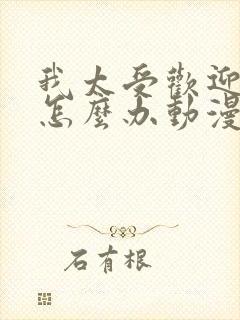 我太受歡迎
怎麼办動漫
石有根